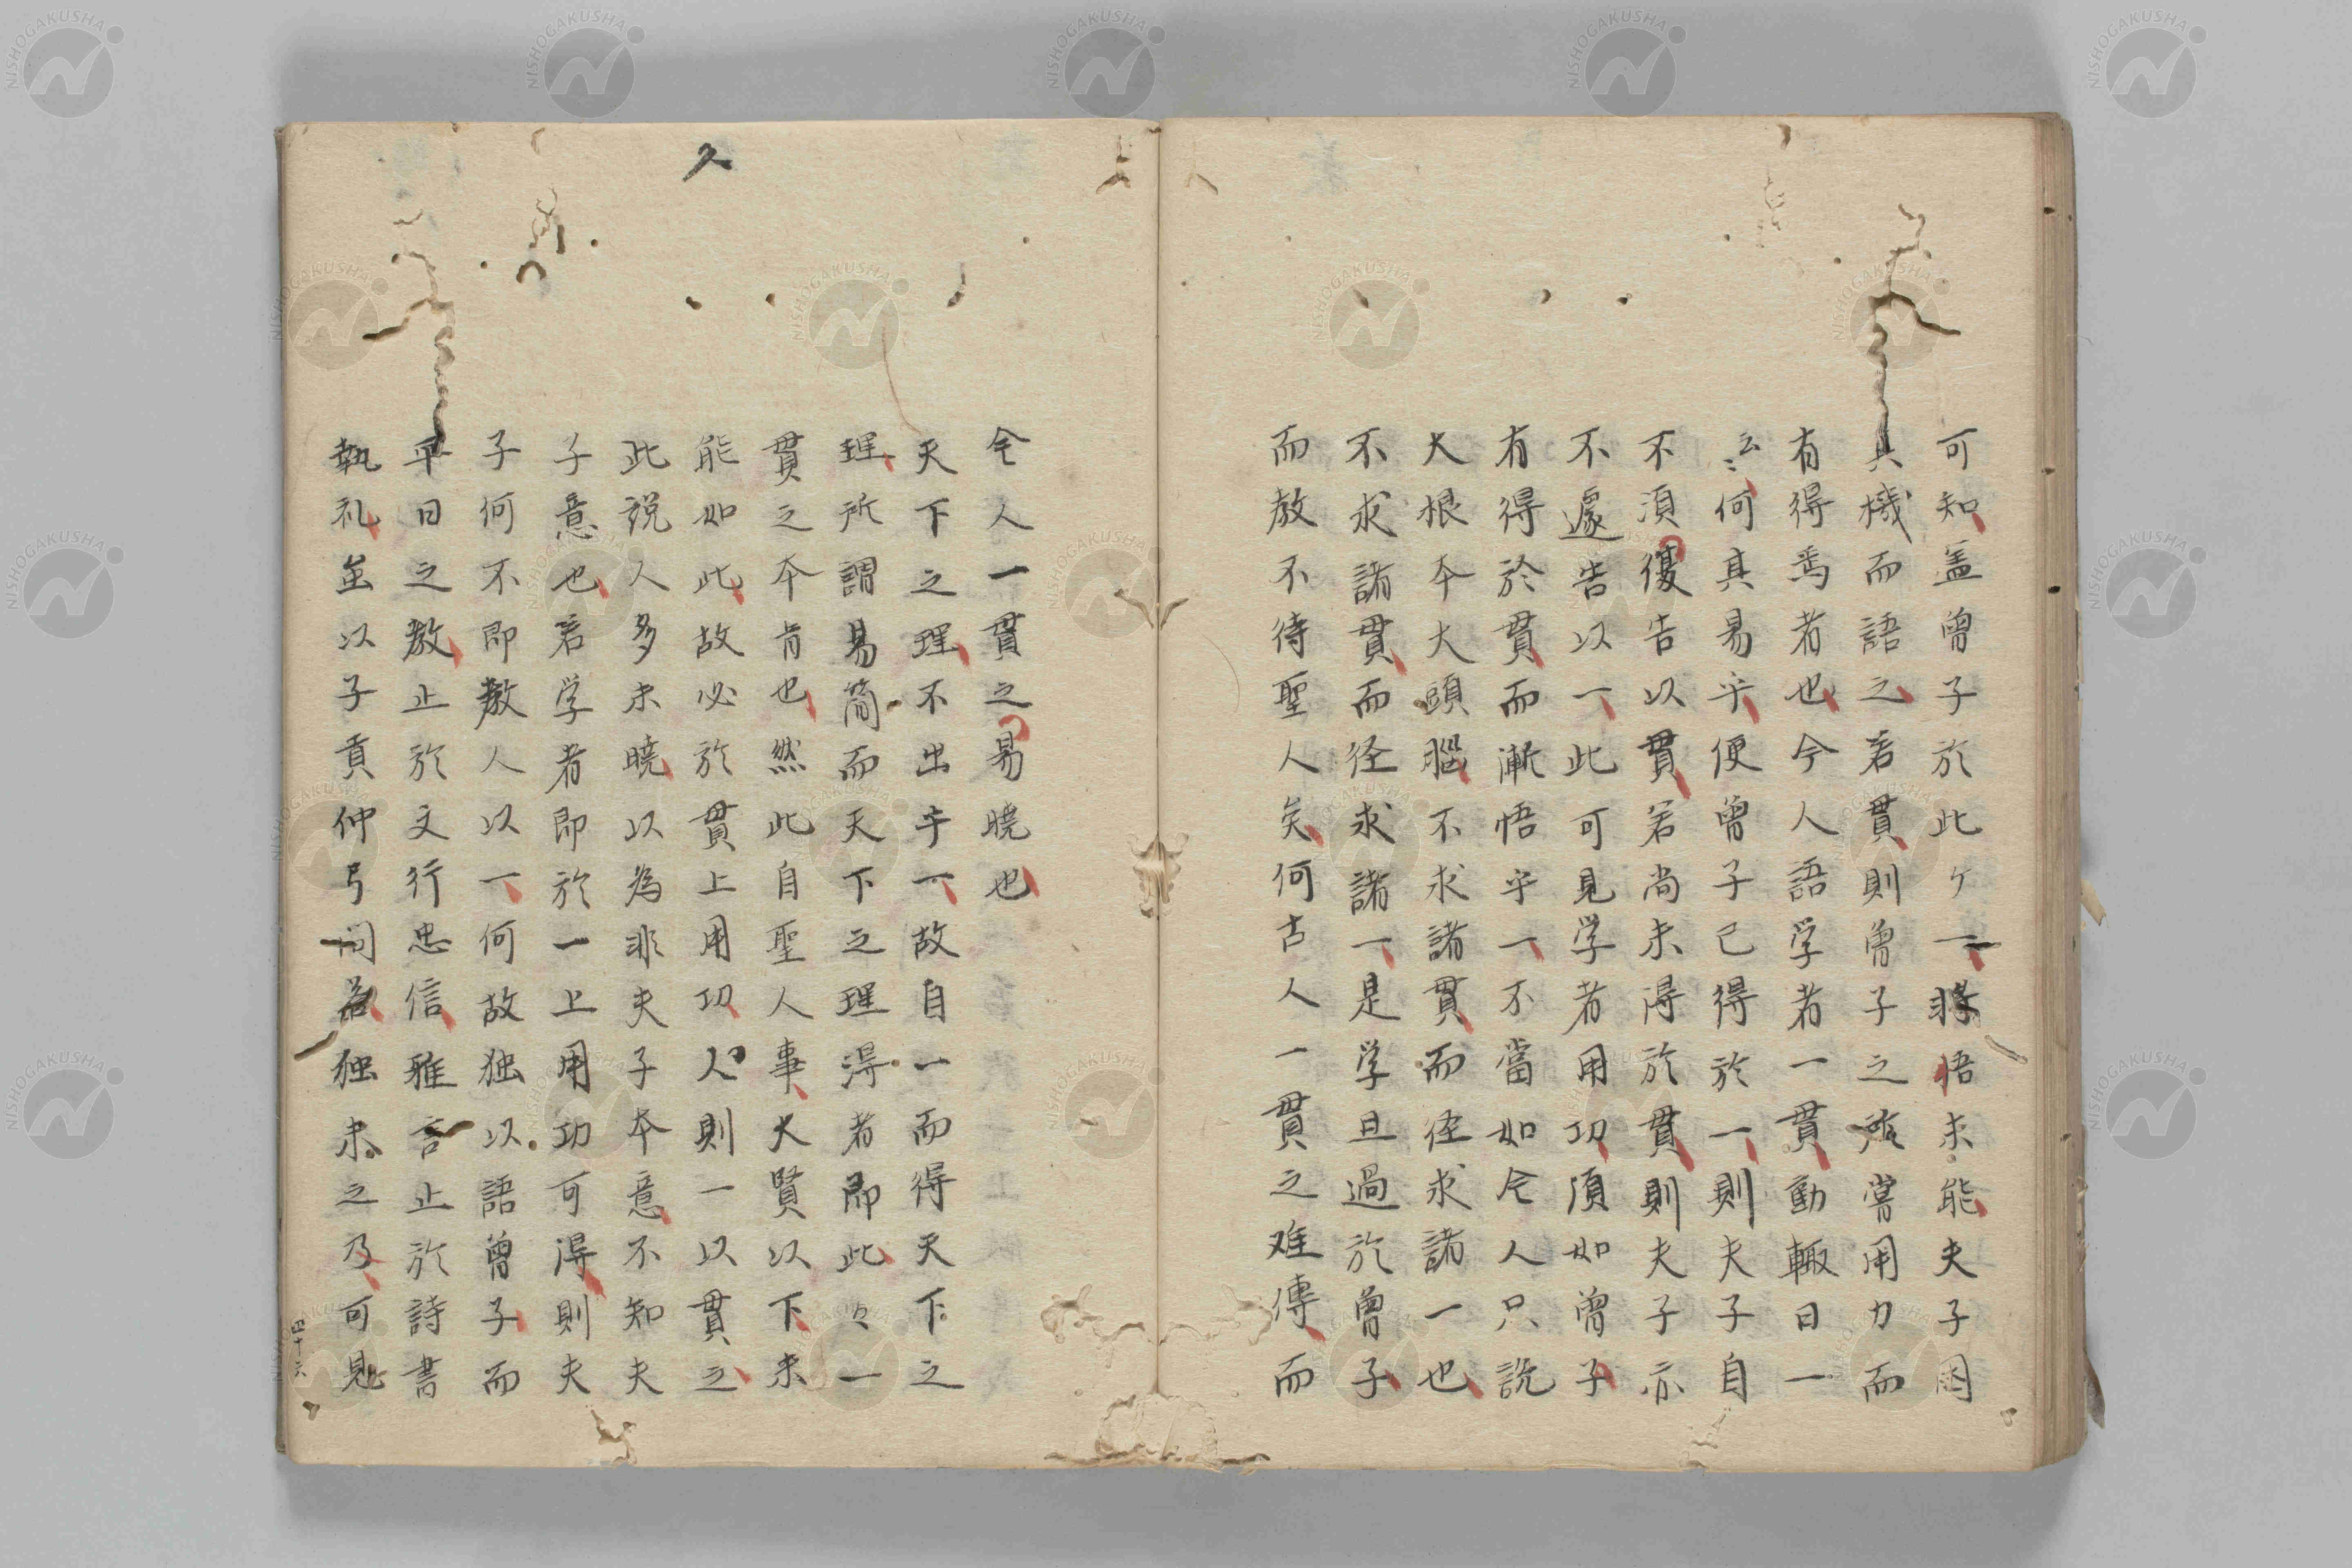 可知盖曽子於此ケ一將悟未能夫子因
其機而語之若貫則曽子之所嘗用力而
有得焉者也今人語学者一貫動輙曰一
云〻何其易乎便曽子已得於一則夫子自
不須復告以貫若尚未得於貫則夫子示
不遽告以一此可見学者用功須如曽子
有得於貫而漸悟乎一不當如今人只説
大根本大頭腦不求諸貫而径求諸一也
不求諸貫而径求諸一是学且過於曽子
而教不待聖人矣何古人一貫之难傳而
今人一貫之易曉也
天下之理不出乎一故自一而得天下之
理所謂易簡而天下之理得者即此々一
貫之本肯也然此自聖人事大賢以下未
能如此故必於貫上用功人則一以貫之
此説人多未曉以為非夫子本意不知夫
子意也若学者即於一上用功可得則夫
子何不即教人以一何故独以語曽子而
平日之教止於文行忠信雅言止於詩書
執礼至以子貢仲弓問為独未之乃可見
四十六
久
NISHOGAKUSHA